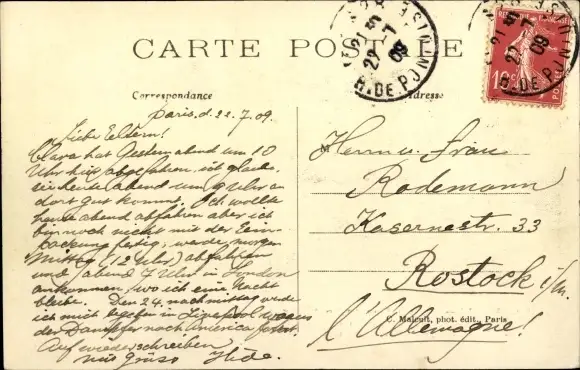 CARTE POSTALE
Correspondance
Adresse
Paris, d. 22.7.09.
Liebe Eltern!
Clara hat Gestern abend um 10
Uhr hier abgefahren, ich glaube
sie heute abend um 9 Uhr an
dort gut kommt. Ich wollte
heute abend abfahren aber ich
bin noch nicht mit der Ein-
packung fertig, werde morgen
Mittag (12 Uhr) abfahren
und abend 7 Uhr in London
ankommen, wo ich eine Nacht
bleibe. Den 24. nachmittag werde
ich mich in Liverpool
der Dampfer nach America
Auf wiederschreiben
mit Grüss
Herrn u. Frau
Rodemann
Kasernestr. 33
Rostock i/m.
l'Allemagne!
C. Malcuit, phot. édit., Paris
22 - 7 09
R. DE PONTHIEU
22 - 7 09
R. DE PONTHIEU
10 c
POSTES